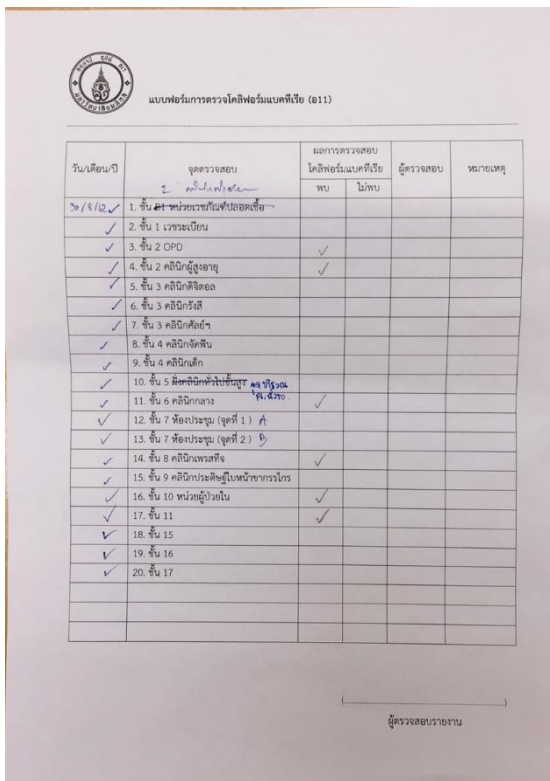 แบบฟอร์มการตรวจโคลิฟอร์มแบคทีเรีย (อ11)
วัน/เดือน/ปี จุดตรวจสอบ ผลการตรวจสอบ โคลิฟอร์มแบคทีเรีย ผู้ตรวจสอบ หมายเหตุ
พบ ไม่พบ
2
30/8/62 ✓ 1. ชั้น B1 หน่วยเวชภัณฑ์ปลอดเชื้อ
✓ 2. ชั้น 1 เวชระเบียน
✓ 3. ชั้น 2 OPD ✓
✓ 4. ชั้น 2 คลินิกผู้สูงอายุ ✓
✓ 5. ชั้น 3 คลินิกดิจิตอล
✓ 6. ชั้น 3 คลินิกรังสี
✓ 7. ชั้น 3 คลินิกศัลย์ฯ
✓ 8. ชั้น 4 คลินิกจัดฟัน
✓ 9. ชั้น 4 คลินิกเด็ก
✓ 10. ชั้น 5 ฝั่งคลินิกทั่วไปชั้นสูง
✓ 11. ชั้น 6 คลินิกกลาง ✓
✓ 12. ชั้น 7 ห้องประชุม (จุดที่ 1 ) A
✓ 13. ชั้น 7 ห้องประชุม (จุดที่ 2 ) B
✓ 14. ชั้น 8 คลินิกเพรสทีจ ✓
✓ 15. ชั้น 9 คลินิกประดิษฐ์ใบหน้าขากรรไกร
✓ 16. ชั้น 10 หน่วยผู้ป่วยใน ✓
✓ 17. ชั้น 11 ✓
✓ 18. ชั้น 15
✓ 19. ชั้น 16
✓ 20. ชั้น 17
(..............................................................)
ผู้ตรวจสอบรายงาน